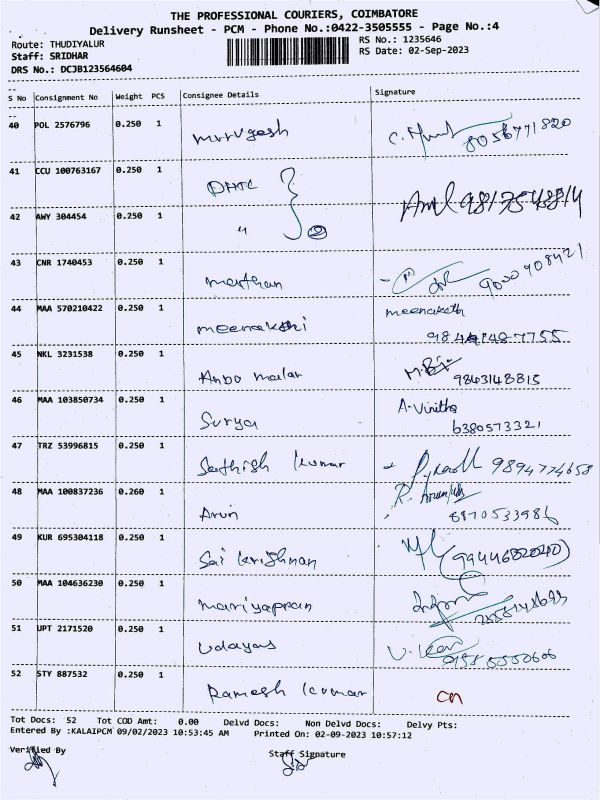 THE PROFESSIONAL COURIERS, COIMBATORE
Delivery Runsheet - PCM - Phone No.:0422-3505555 - Page No.:4
Route: THUDIYALUR RS No.: 1235646
Staff: SRIDHAR RS Date: 02-Sep-2023
DRS No.: DCJB123564604
S No Consignment No Weight PCS Consignee Details Signature
40 POL 2576796 0.250 1 Murugesh 8056771820
41 CCU 100763167 0.250 1 DHTC Aml 9817548814
42 AWY 304454 0.250 1 " 2
43 CNR 1740453 0.250 1 marthan 9000908421
44 MAA 570210422 0.250 1 meenakshi meenakshi
9841487755
45 NKL 3231538 0.250 1 Anbo malar 9843148815
46 MAA 103850734 0.250 1 Surya A-Vinitha
6380573321
47 TRZ 53996815 0.250 1 Sathish kumar 9894774658
48 MAA 100837236 0.260 1 Arun
8870533986
49 KUR 695304118 0.250 1 Sai krishnan (9944682020)
50 MAA 104636230 0.250 1 mariyappan
51 UPT 2171520 0.250 1 Udayas 9585550606
52 STY 887532 0.250 1 Ramesh kumar cn
Tot Docs: 52 Tot COD Amt: 0.00 Delvd Docs: Non Delvd Docs: Delvy Pts:
Entered By :KALAIPCM 09/02/2023 10:53:45 AM Printed On: 02-09-2023 10:57:12
Verified By Staff Signature